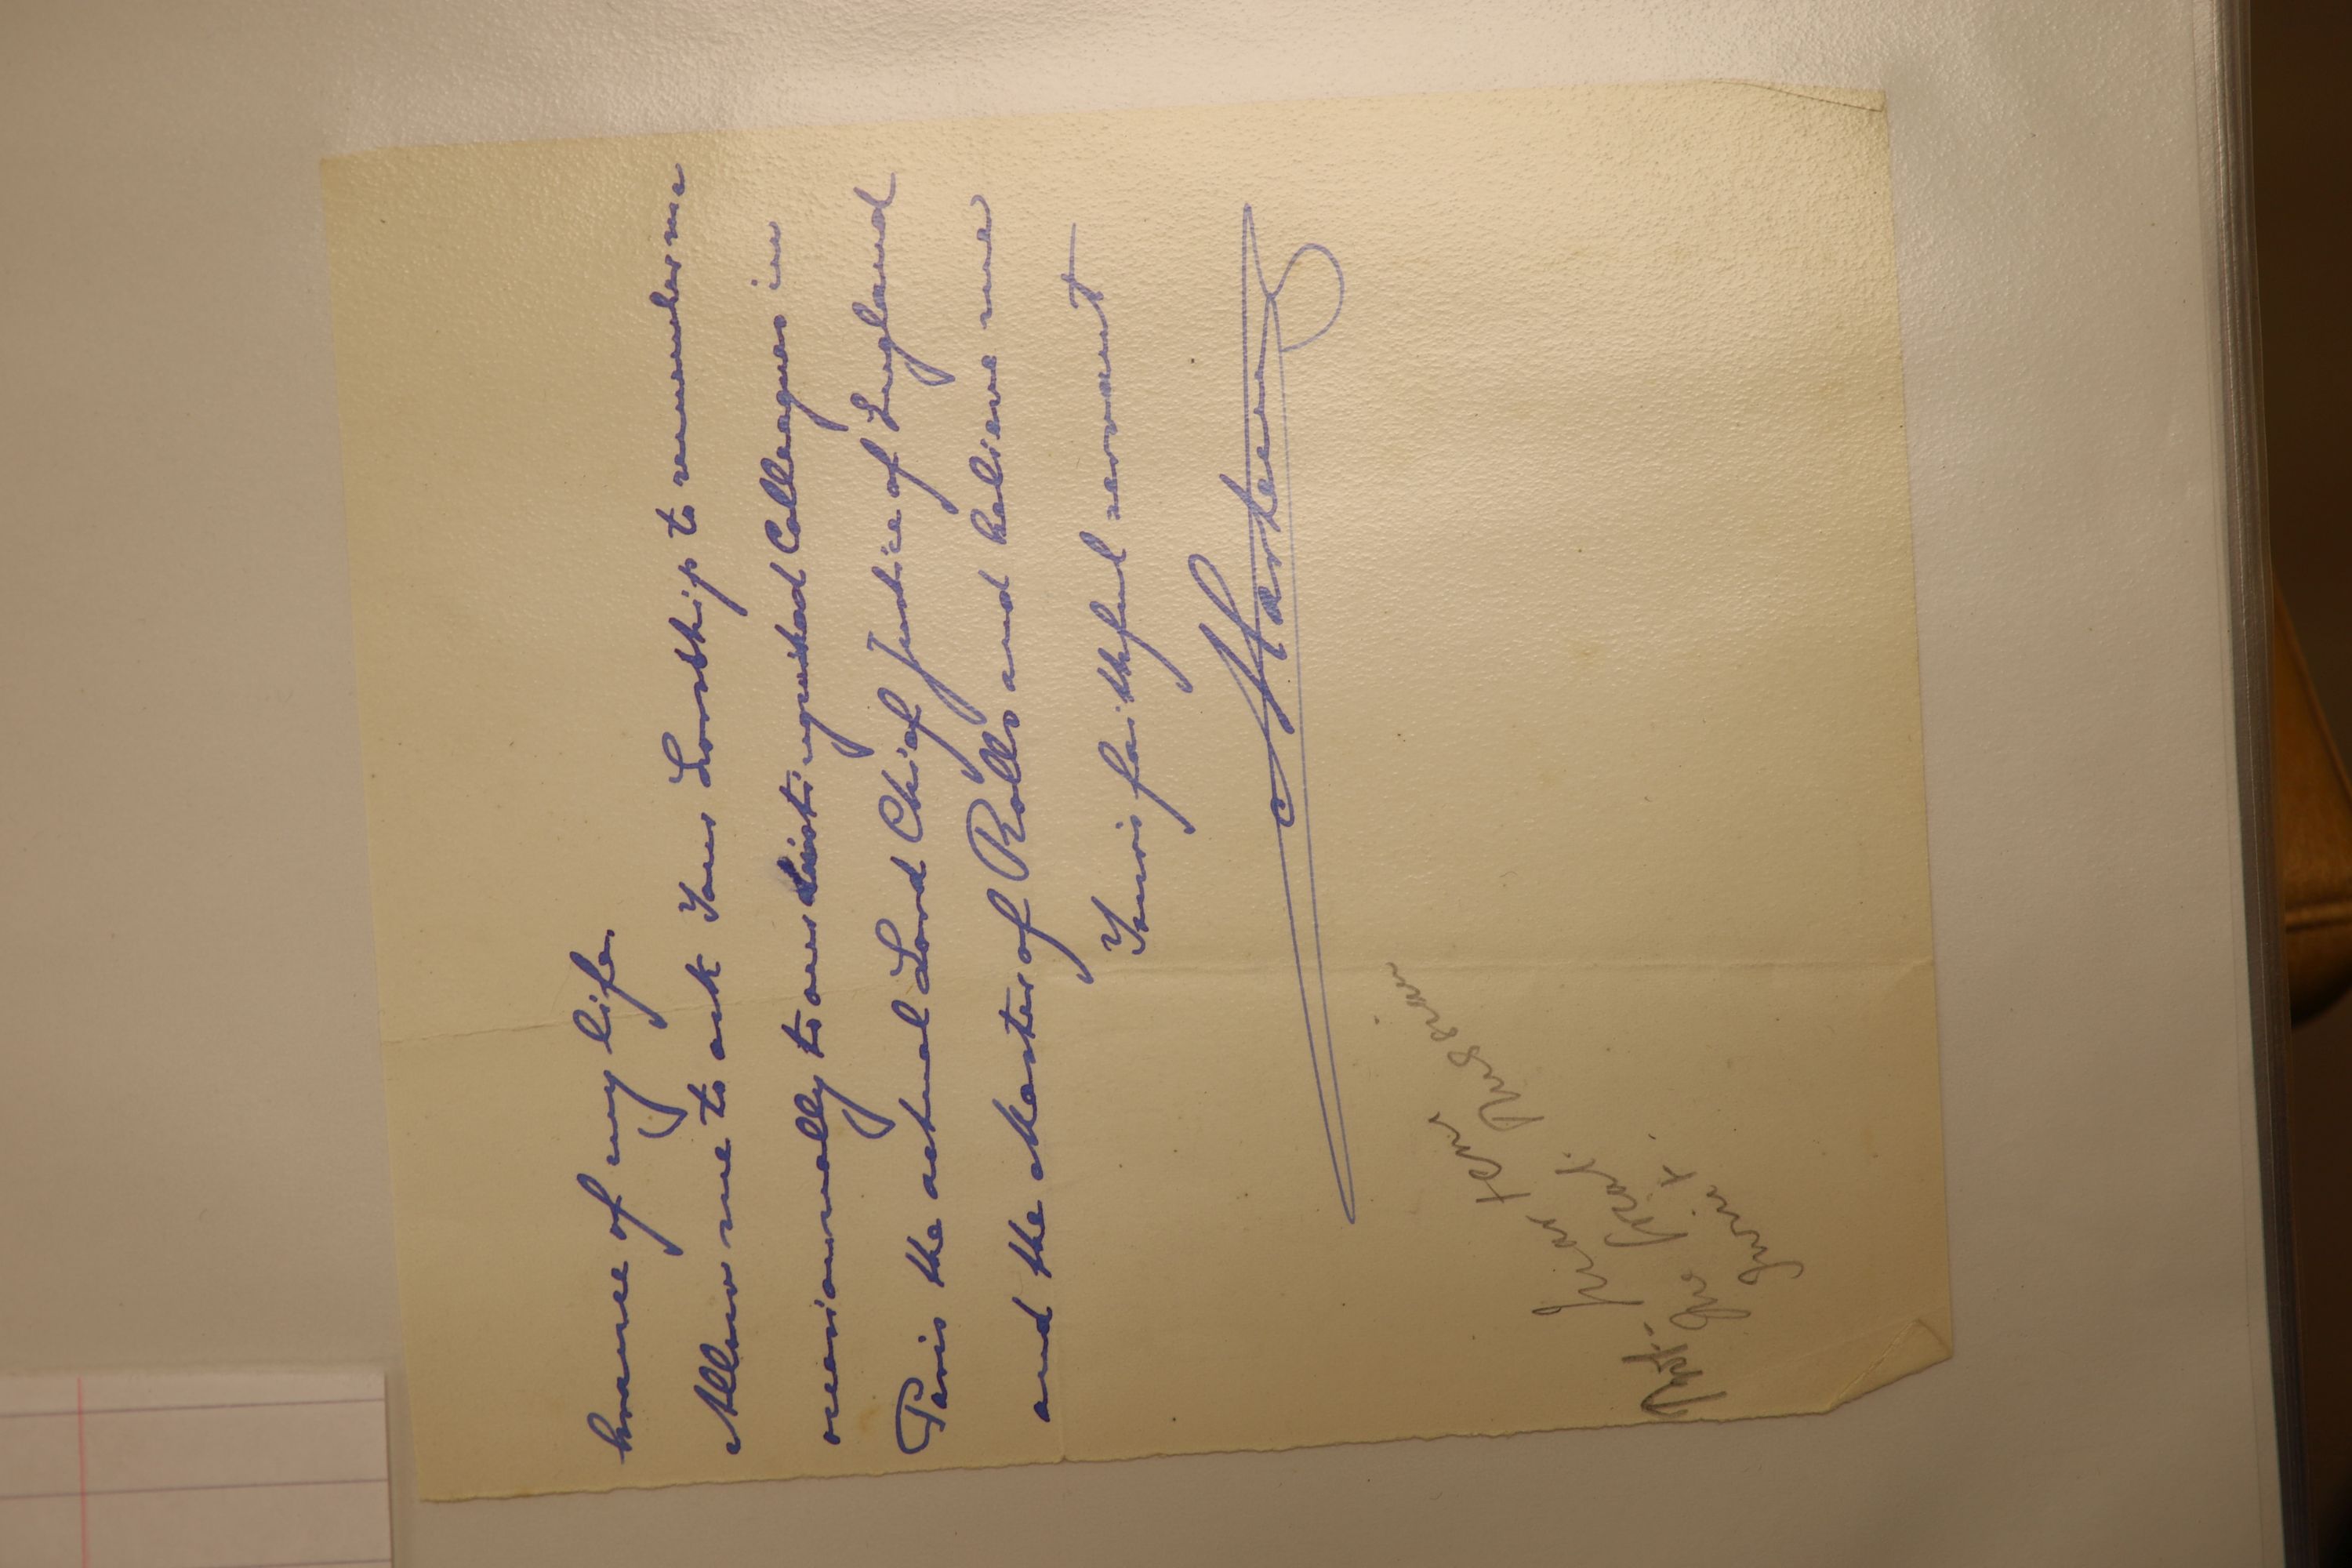 hours of my life.
Allow me to ask Your Lordship to remember me
occasionally to our distinguished Colleagues in
Paris the actual Lord Chief Justice of England
and the Master of Rolls and believe me
Yours faithful servant
Martens
from
Russian